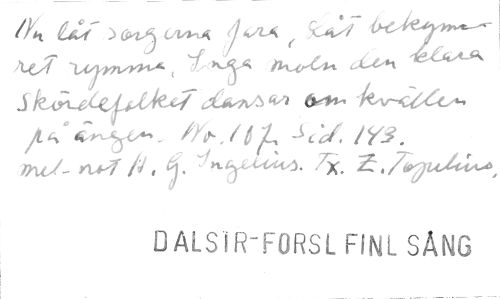 Nu låt sorgerna fara, Låt bekym-
ret rymma, Inga moln den klara
Skördefolket dansar om kvällen
på ängen. No. 107. Sid. 143.
mel-not A. G. Ingelius. Tx. Z. Topelius.
DALSTR-FORSL FINL SÅNG